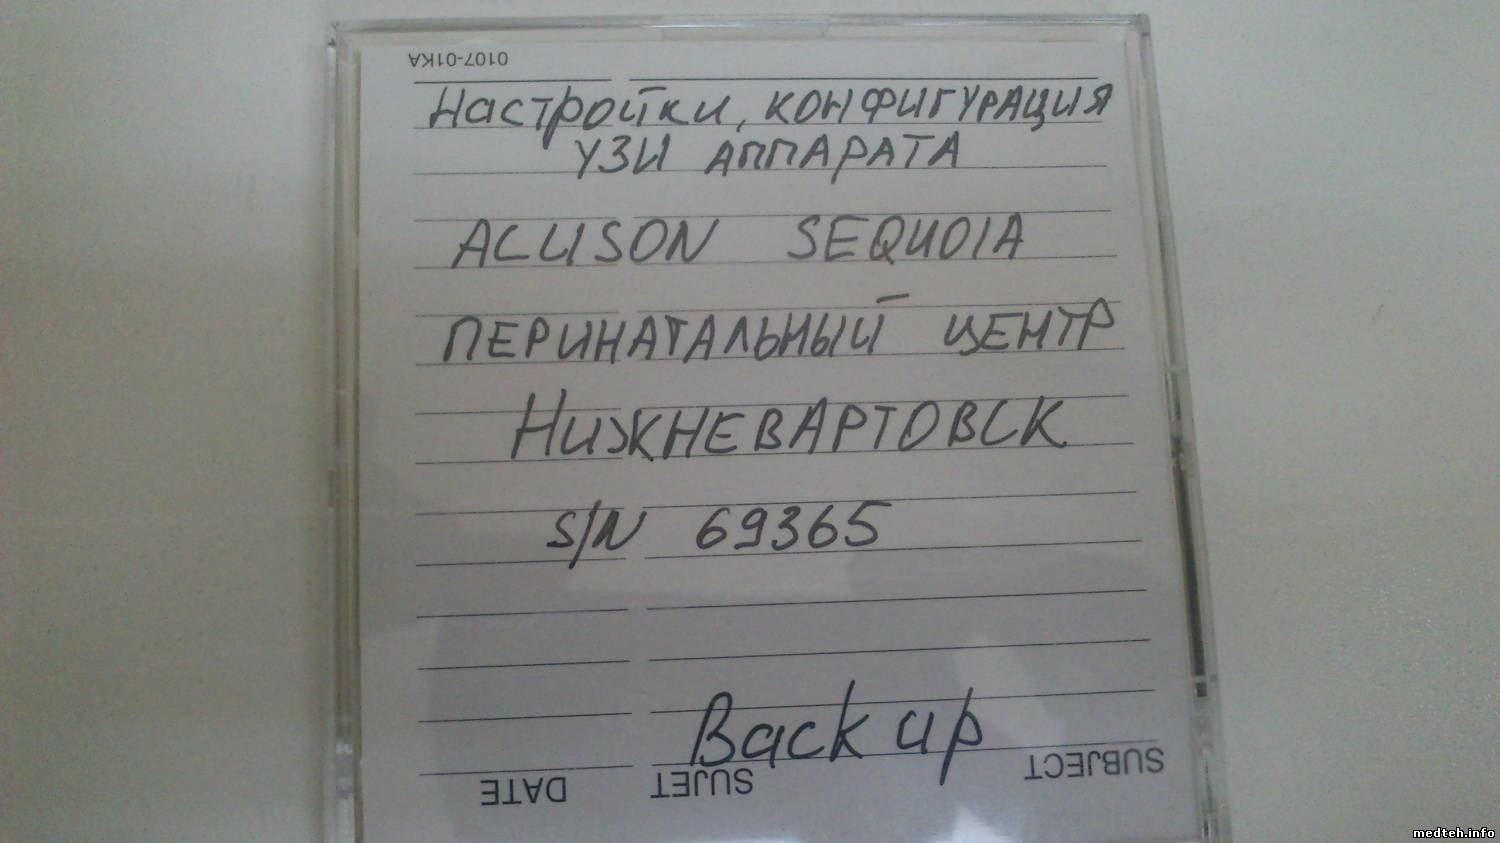 0107-01KA
Настройки, конфигурация
УЗИ аппарата
ACUSON SEQUOIA
ПЕРИНАТАЛЬНЫЙ ЦЕНТР
НИЖНЕВАРТОВСК
S/N 69365
Back up
DATE SUJET SUBJECT
medteh.info